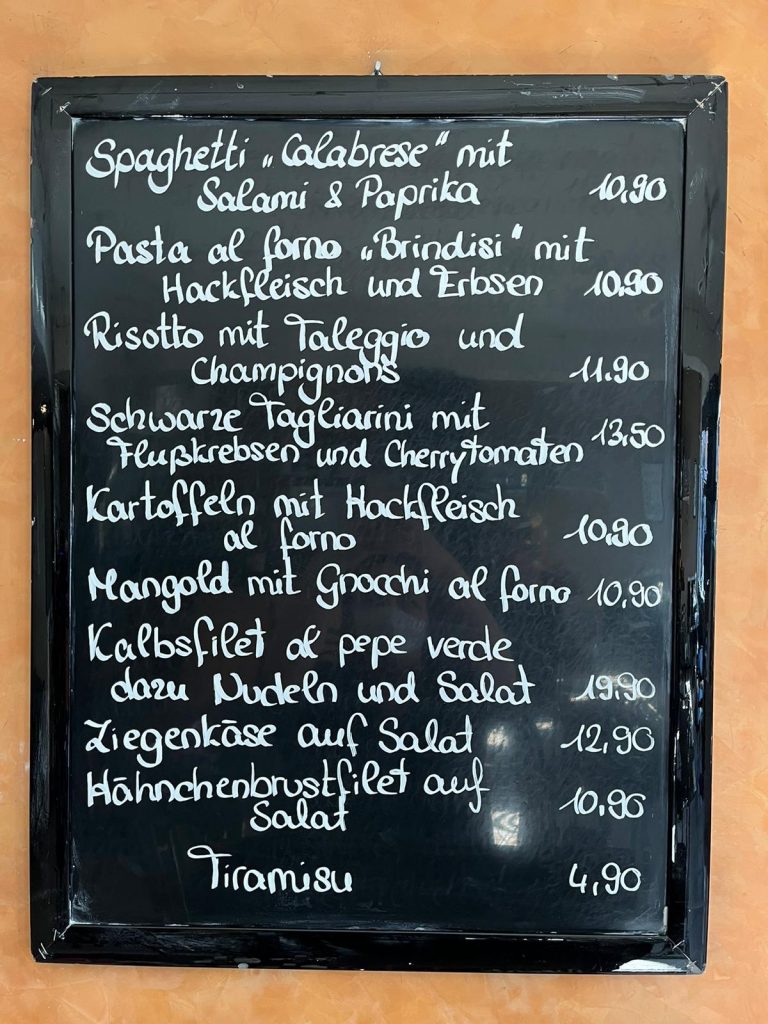 Spaghetti „Calabrese“ mit
Salami & Paprika 10,90
Pasta al forno „Brindisi“ mit
Hackfleisch und Erbsen 10.90
Risotto mit Taleggio und
Champignons 11.90
Schwarze Tagliarini mit
Flußkrebsen und Cherrytomaten 13,50
Kartoffeln mit Hackfleisch
al forno 10,90
Mangold mit Gnocchi al forno 10,90
Kalbsfilet al pepe verde
dazu Nudeln und Salat 19,90
Ziegenkäse auf Salat 12,90
Hähnchenbrustfilet auf
Salat 10,90
Tiramisu 4,90